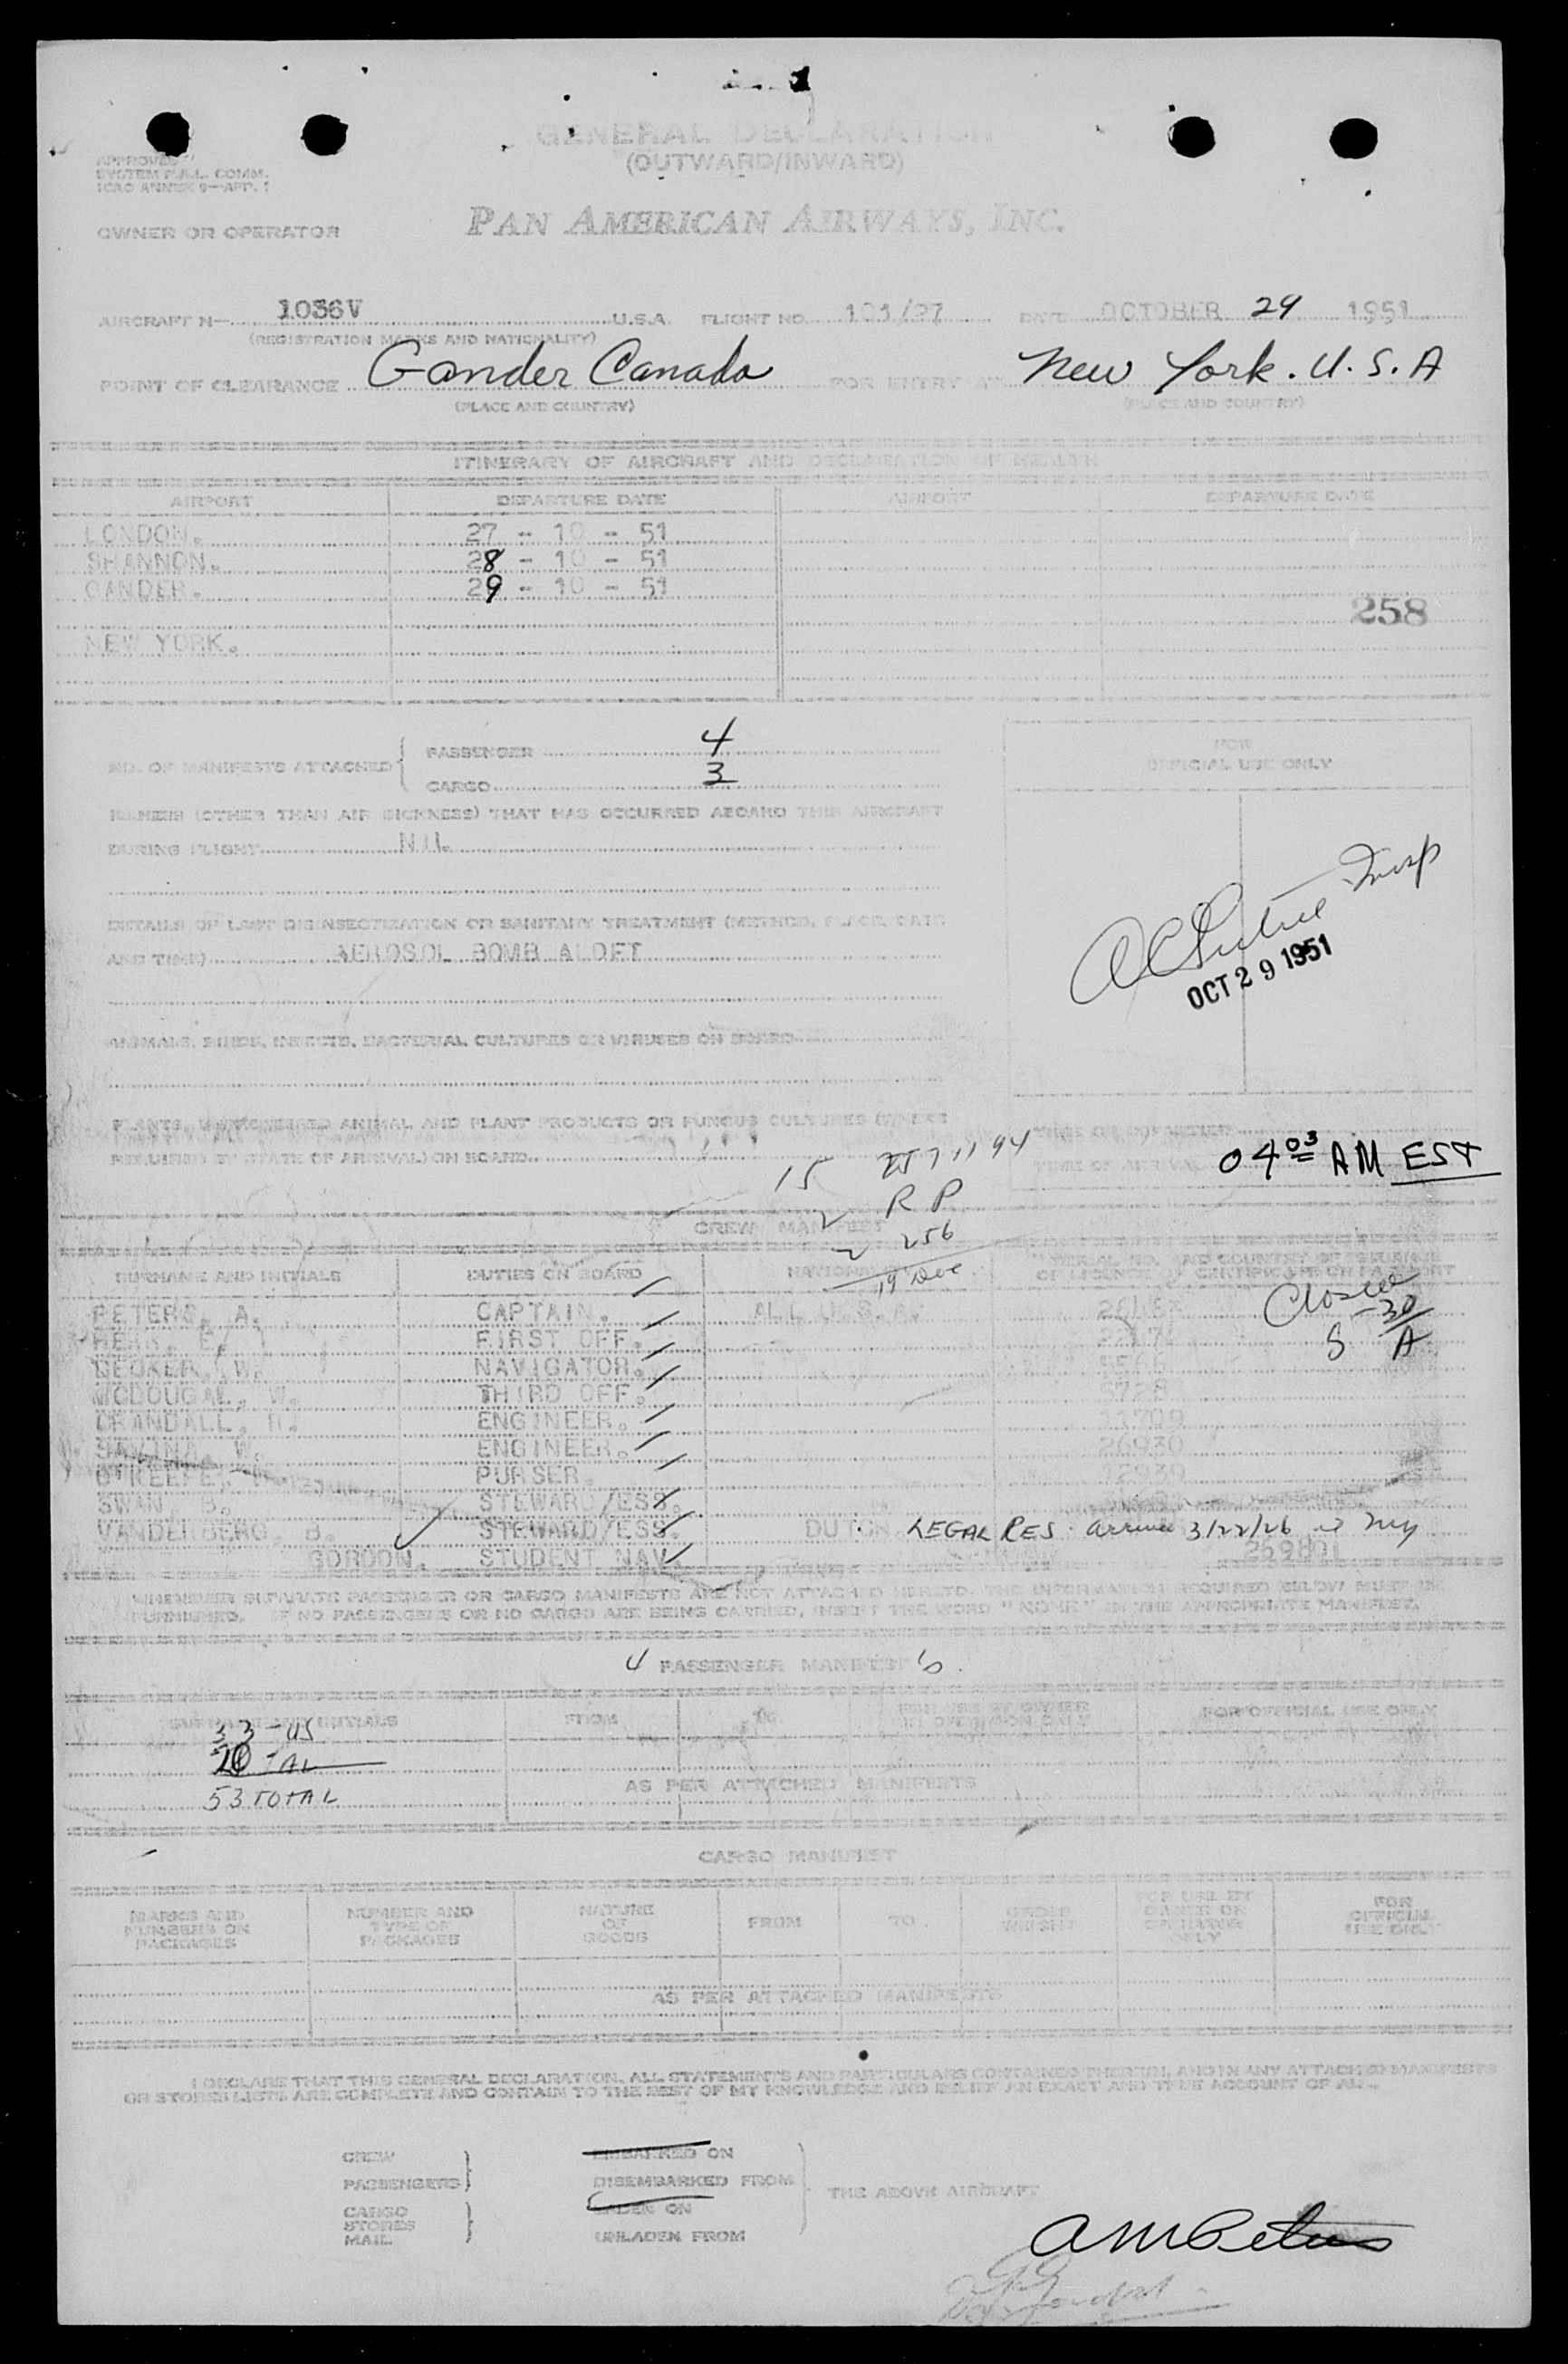 GENERAL DECLARATION
(OUTWARD/INWARD)
APPROVED
SYSTEM F.A.L. COMM.
ICAO ANNEX 9—APP. 1
OWNER OR OPERATOR PAN AMERICAN AIRWAYS, INC.
AIRCRAFT N— 1036V U.S.A. FLIGHT NO. 101/27 DATE OCTOBER 29 1951
(REGISTRATION MARKS AND NATIONALITY)
POINT OF CLEARANCE Gander Canada FOR ENTRY AT New York. U.S.A
(PLACE AND COUNTRY) (PLACE AND COUNTRY)
ITINERARY OF AIRCRAFT AND DECLARATION OF HEALTH
AIRPORT DEPARTURE DATE AIRPORT DEPARTURE DATE
LONDON. 27 - 10 - 51
SHANNON. 28 - 10 - 51
GANDER. 29 - 10 - 51
258
NEW YORK.
NO. OF MANIFESTS ATTACHED PASSENGER 4
CARGO 3
FOR
OFFICIAL USE ONLY
ILLNESS (OTHER THAN AIR SICKNESS) THAT HAS OCCURRED ABOARD THIS AIRCRAFT
DURING FLIGHT NIL.
DETAILS OF LAST DISINSECTIZATION OR SANITARY TREATMENT (METHOD, PLACE, DATE
AND TIME) AEROSOL BOMB ALOFT
Insp
OCT 29 1951
ANIMALS, BIRDS, INSECTS, BACTERIAL CULTURES OR VIRUSES ON BOARD
PLANTS, UNPROCESSED ANIMAL AND PLANT PRODUCTS OR FUNGUS CULTURES (WHERE
REQUIRED BY STATE OF ARRIVAL) ON BOARD
TIME OF ARRIVAL 04 03 AM EST
15
2 R P
2 256
CREW MANIFEST
SURNAME AND INITIALS DUTIES ON BOARD NATIONALITY
19 Doc
Closed
PETERS, A. CAPTAIN. ALL U.S.A.
FIRST OFF.
S A
DECKER, W. NAVIGATOR.
MCDOUGAL, W. THIRD OFF.
CRANDALL, R. ENGINEER. 11709
SAVINA, W. ENGINEER. 26930
O'KEEFE, PURSER.
SWAN, B. STEWARD/ESS.
VANDENBERG, B. STEWARD/ESS. DUTCH LEGAL RES. arrived 3/22/26 NY
GORDON, STUDENT NAV. 259801
WHENEVER SEPARATE PASSENGER OR CARGO MANIFESTS ARE NOT ATTACHED HERETO, THE INFORMATION REQUIRED BELOW MUST BE
FURNISHED. IF NO PASSENGERS OR NO CARGO ARE BEING CARRIED, INSERT THE WORD "NONE" IN THE APPROPRIATE MANIFEST.
4 PASSENGER MANIFEST's
SURNAME AND INITIALS FROM TO FOR USE BY OWNER
OR OPERATOR ONLY FOR OFFICIAL USE ONLY
33 - US
20 - AL
AS PER ATTACHED MANIFESTS
53 TOTAL
CARGO MANIFEST
MARKS AND
NUMBERS ON
PACKAGES
NUMBER AND
TYPE OF
PACKAGES
NATURE
OF
GOODS
FROM
TO
GROSS
WEIGHT
FOR USE BY
OWNER OR
OPERATOR
ONLY
FOR
OFFICIAL
USE ONLY
AS PER ATTACHED MANIFESTS
I DECLARE THAT THIS GENERAL DECLARATION, ALL STATEMENTS AND PARTICULARS CONTAINED THEREIN, AND IN ANY ATTACHED MANIFESTS
OR STORES LISTS ARE COMPLETE AND CONTAIN TO THE BEST OF MY KNOWLEDGE AND BELIEF AN EXACT AND TRUE ACCOUNT OF ALL
CREW EMBARKED ON
PASSENGERS DISEMBARKED FROM
THE ABOVE AIRCRAFT
CARGO LADEN ON
STORES
MAIL UNLADEN FROM
AM Peters